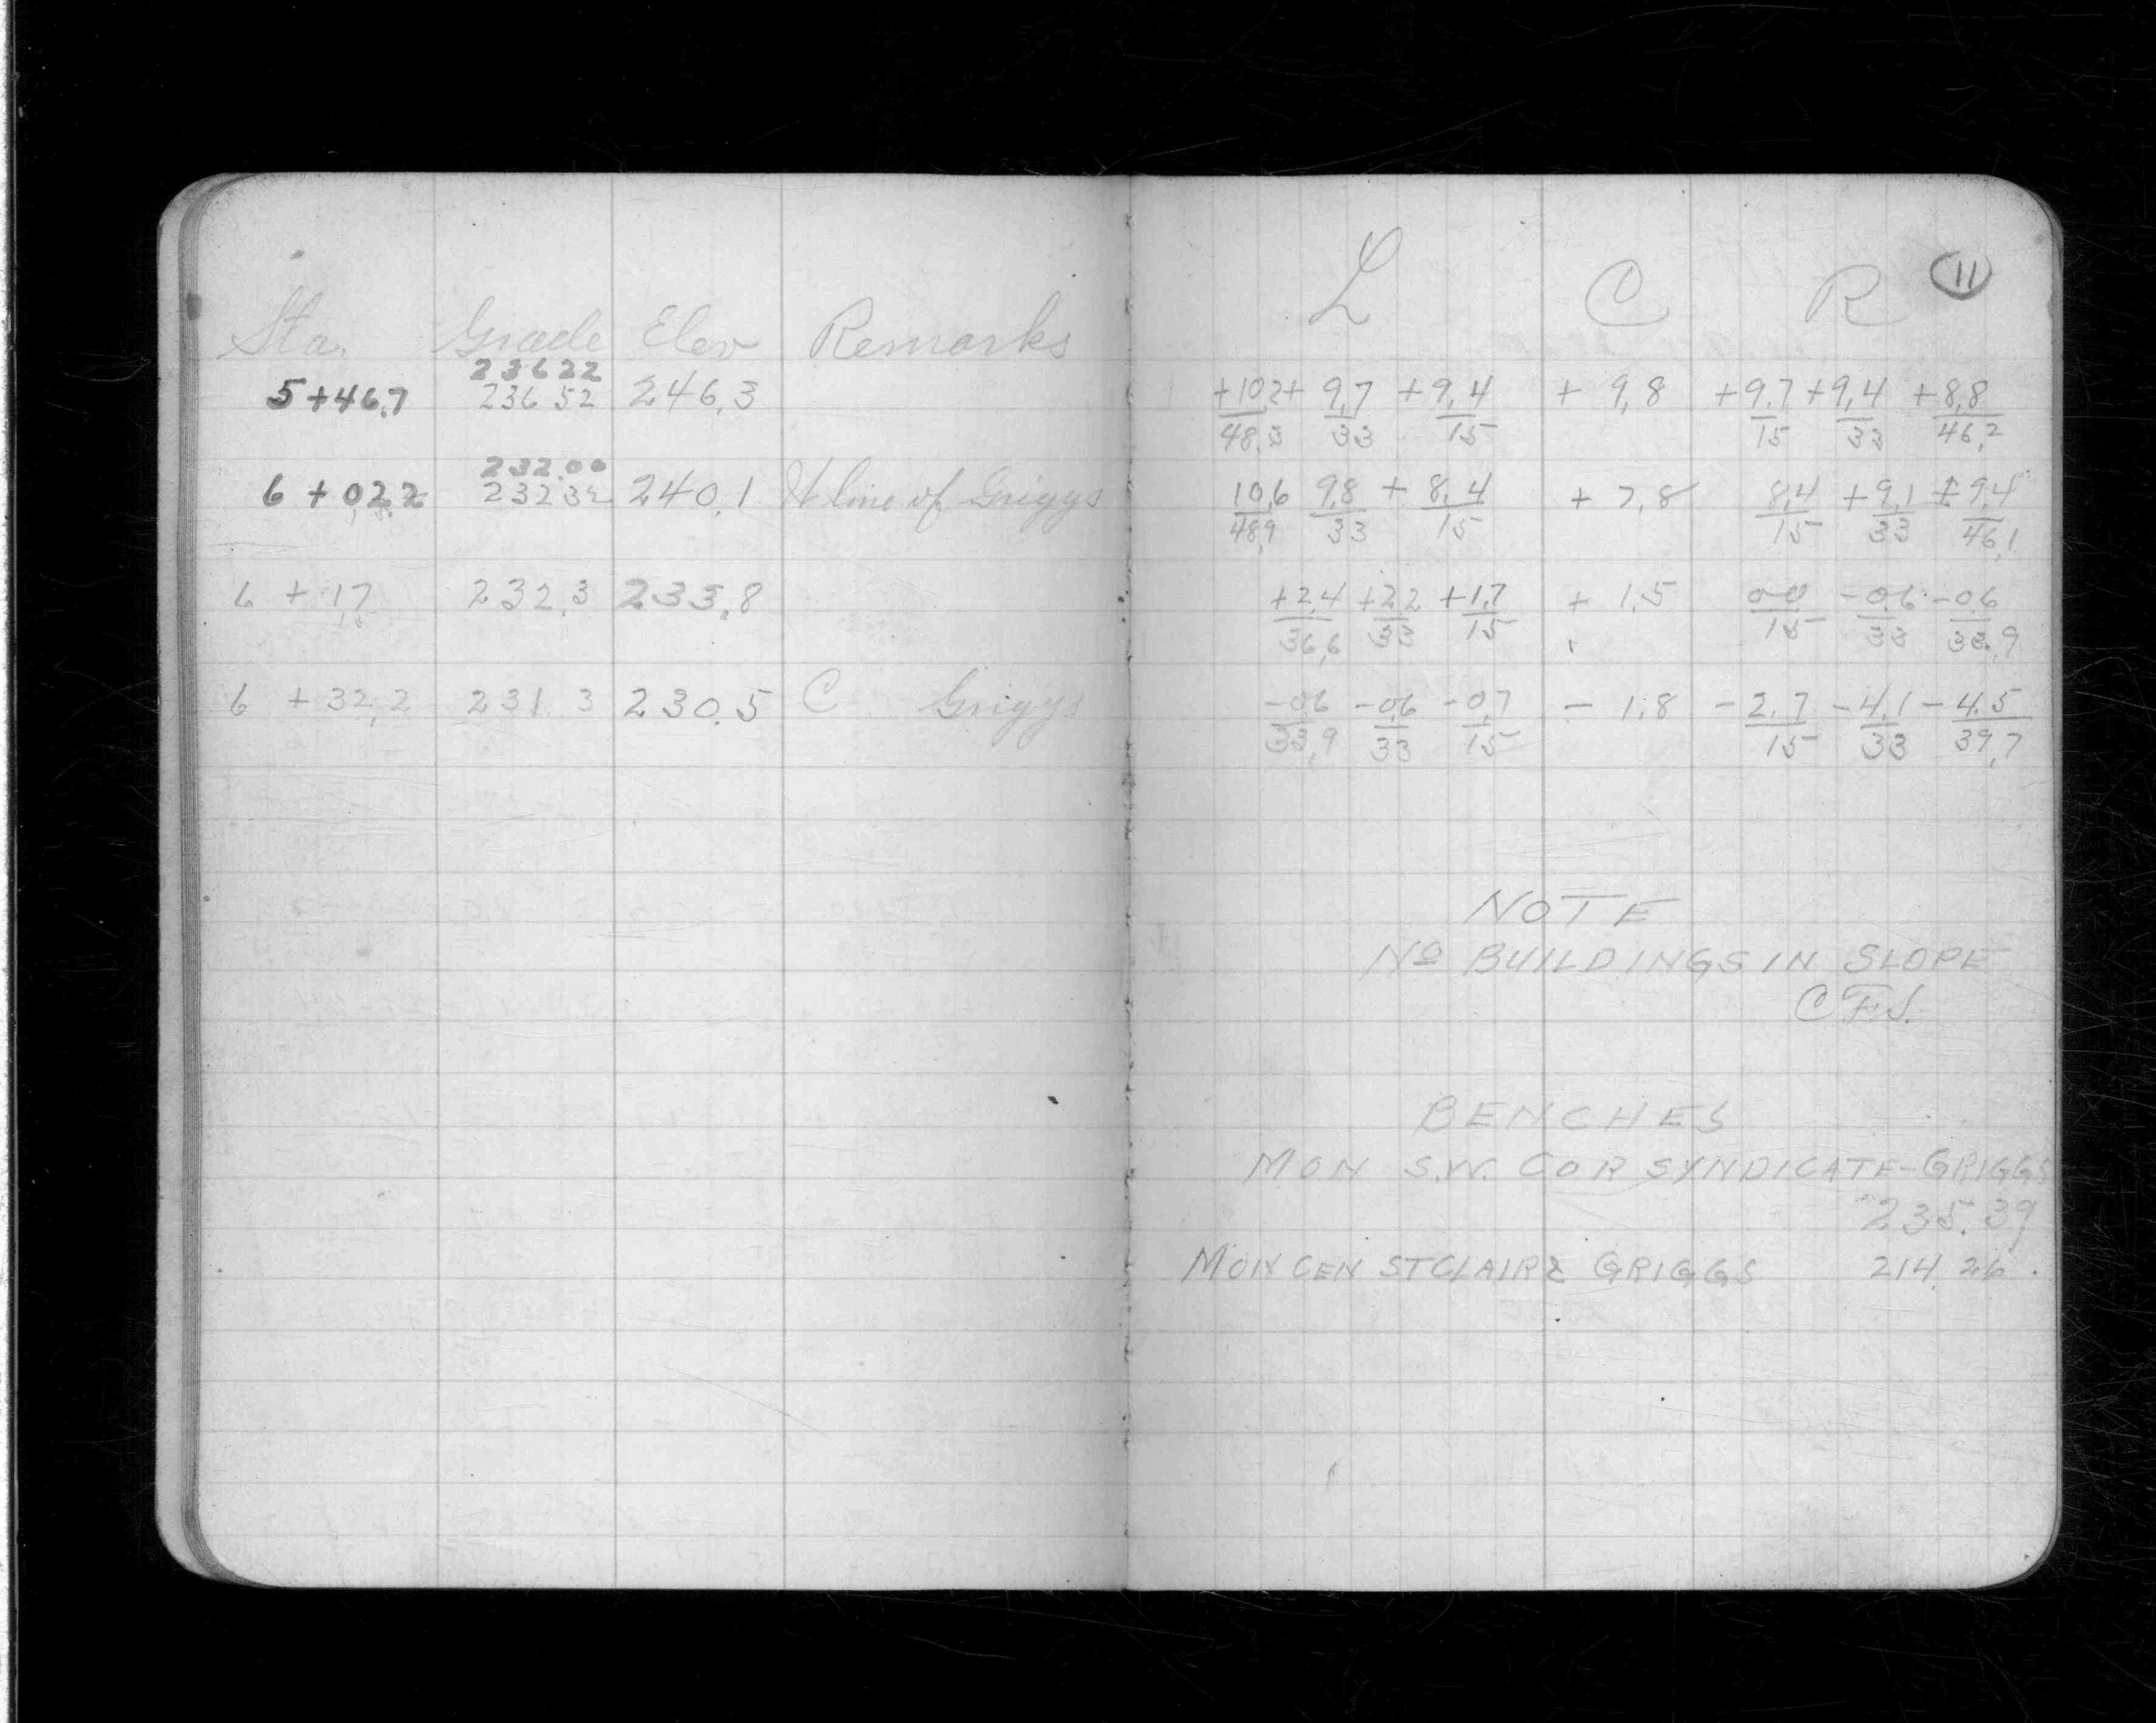 Sta. Grade Elev Remarks
236 22
5+46.7 236 52 246.3
232.00
6 + 02.2 232 32 240.1 N line of Griggs
6 + 17 232.3 233.8
6 + 32.2 231 3 230.5 C Griggs
L C R 11
+10.2 + 9.7 +9.4 + 9.8 +9.7 +9.4 +8.8
48.3 33 15 15 33 46.2
10.6 9.8 + 8.4 + 7.8 8.4 +9.1 +9.4
48.9 33 15 15 33 46.1
+2.4 +2.2 +1.7 + 1.5 0.0 -0.6 -0.6
36.6 33 15 15 33 33.9
-0.6 -0.6 -0.7 - 1.8 -2.7 -4.1 -4.5
33.9 33 15 15 33 39.7
NOTE
NO BUILDINGS IN SLOPE
C.F.S.
BENCHES
MON S.W. COR SYNDICATE-GRIGGS
235.39
MON CEN ST CLAIR & GRIGGS 214.26